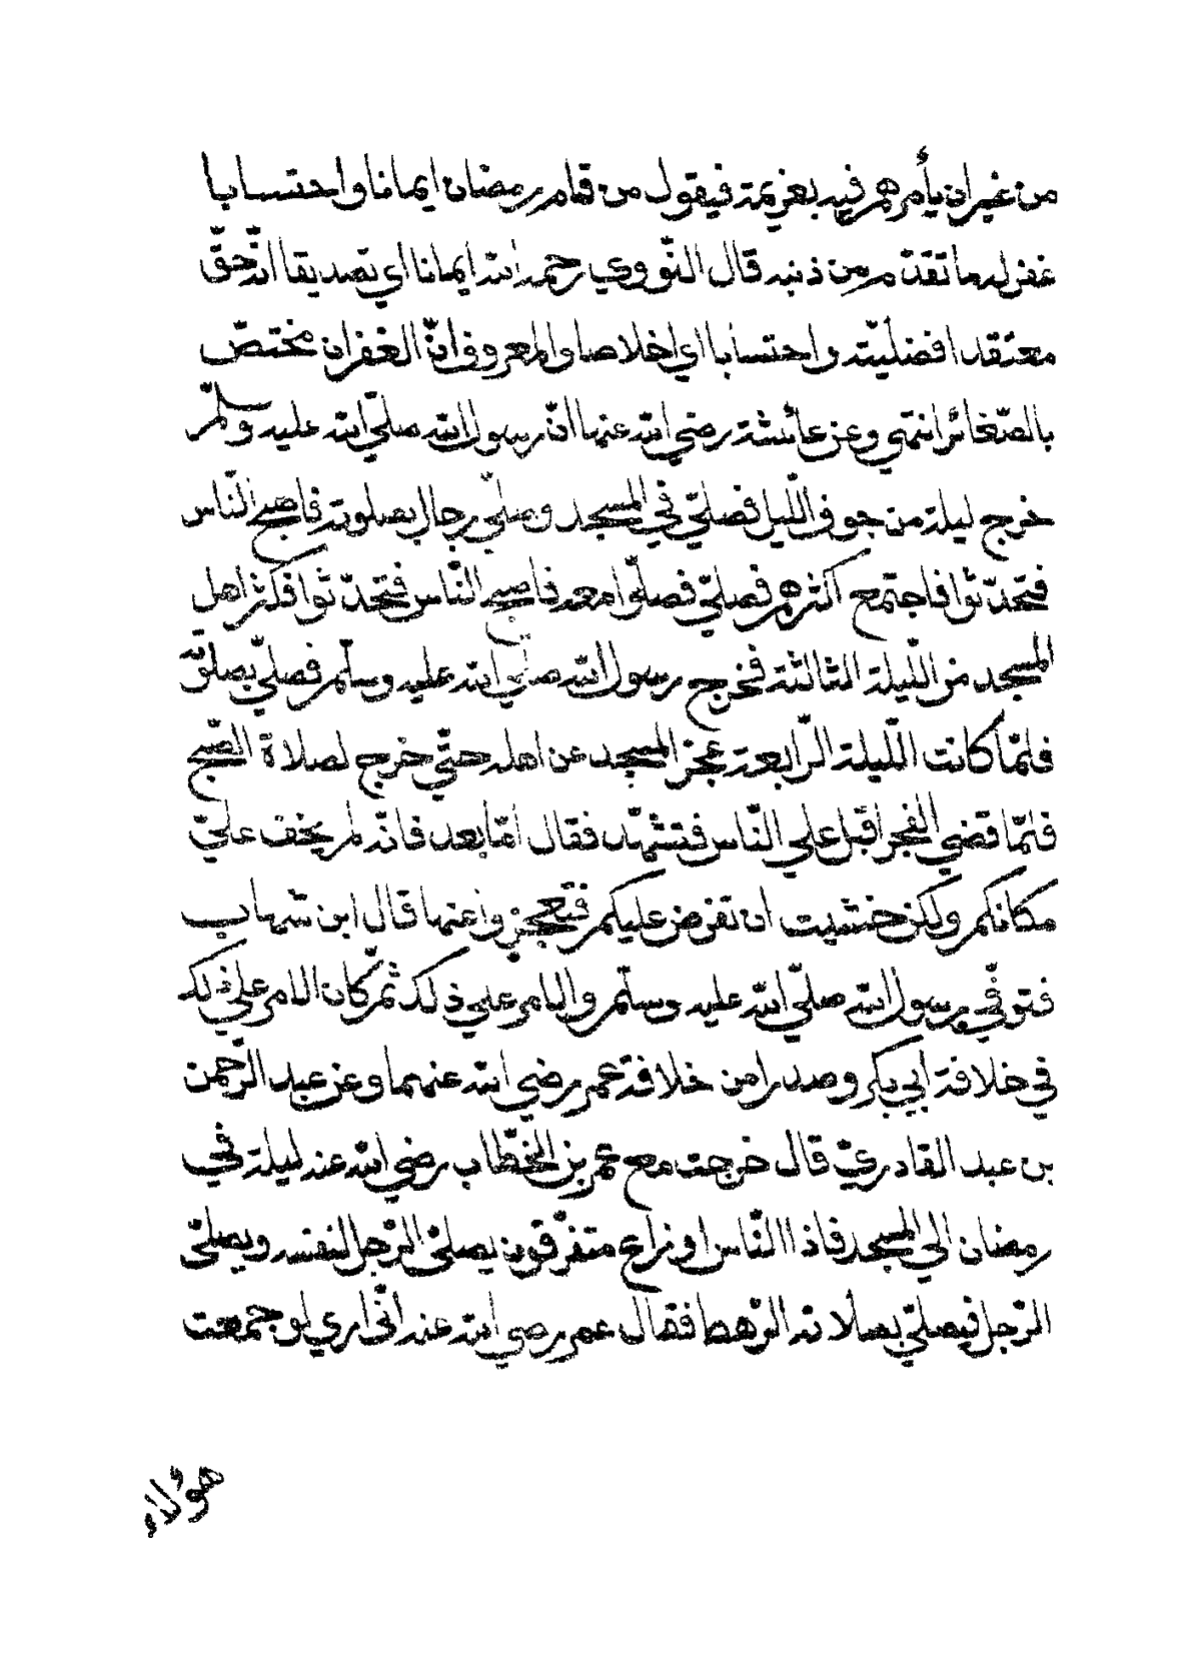 من غير ان يأمرهم فيه بعزيمة فيقول من قام رمضان ايمانا واحتسابا
غفر له ما تقدّم من ذنبه قال النّووي رحمه الله ايمانا اي تصديقا انّه حقّ
معتقدا فضليّته واحتسابا اي اخلاصا والمعروف انّ الغفران مختصّ
بالصّغائر انتهي وعن عائشة رضي الله عنها انّ رسول الله صلّي الله عليه وسلّم
خرج ليلة من جوف اللّيل فصلّي في المسجد وصلّي رجال بصلوته فاصبح النّاس
فتحدّثوا فاجتمع اكثرهم فصلّي فصلّوا معه فاصبح النّاس فتحدّثوا فكثر اهل
المسجد من اللّيلة الثالثة فخرج رسول الله صلّي الله عليه وسلّم فصلّي بصلوته
فلمّا كانت اللّيلة الرّابعة عجز المسجد عن اهله حتّي خرج لصلاة الصّبح
فلمّا قضي الفجر اقبل علي النّاس فتشهّد فقال امّا بعد فانّه لم يخف عليّ
مكانكم ولكن خشيت ان تفرض عليكم فتعجزوا عنها قال ابن شهاب
فتوفّي رسول الله صلّي الله عليه وسلّم والامر علي ذلك ثمّ كان الامر علي ذلك
في خلافة ابي بكر وصدرا من خلافة عمر رضي الله عنهما وعن عبد الرّحمن
بن عبد القادريّ قال خرجت مع عمر بن الخطّاب رضي الله عنه ليلة في
رمضان الي المسجد فاذا النّاس اوزاع متفرّقون يصلّي الرّجل لنفسه ويصلّي
الرّجل فيصلّي بصلاته الرّهط فقال عمر رضي الله عنه انّي اري لو جمعت
هؤلاء